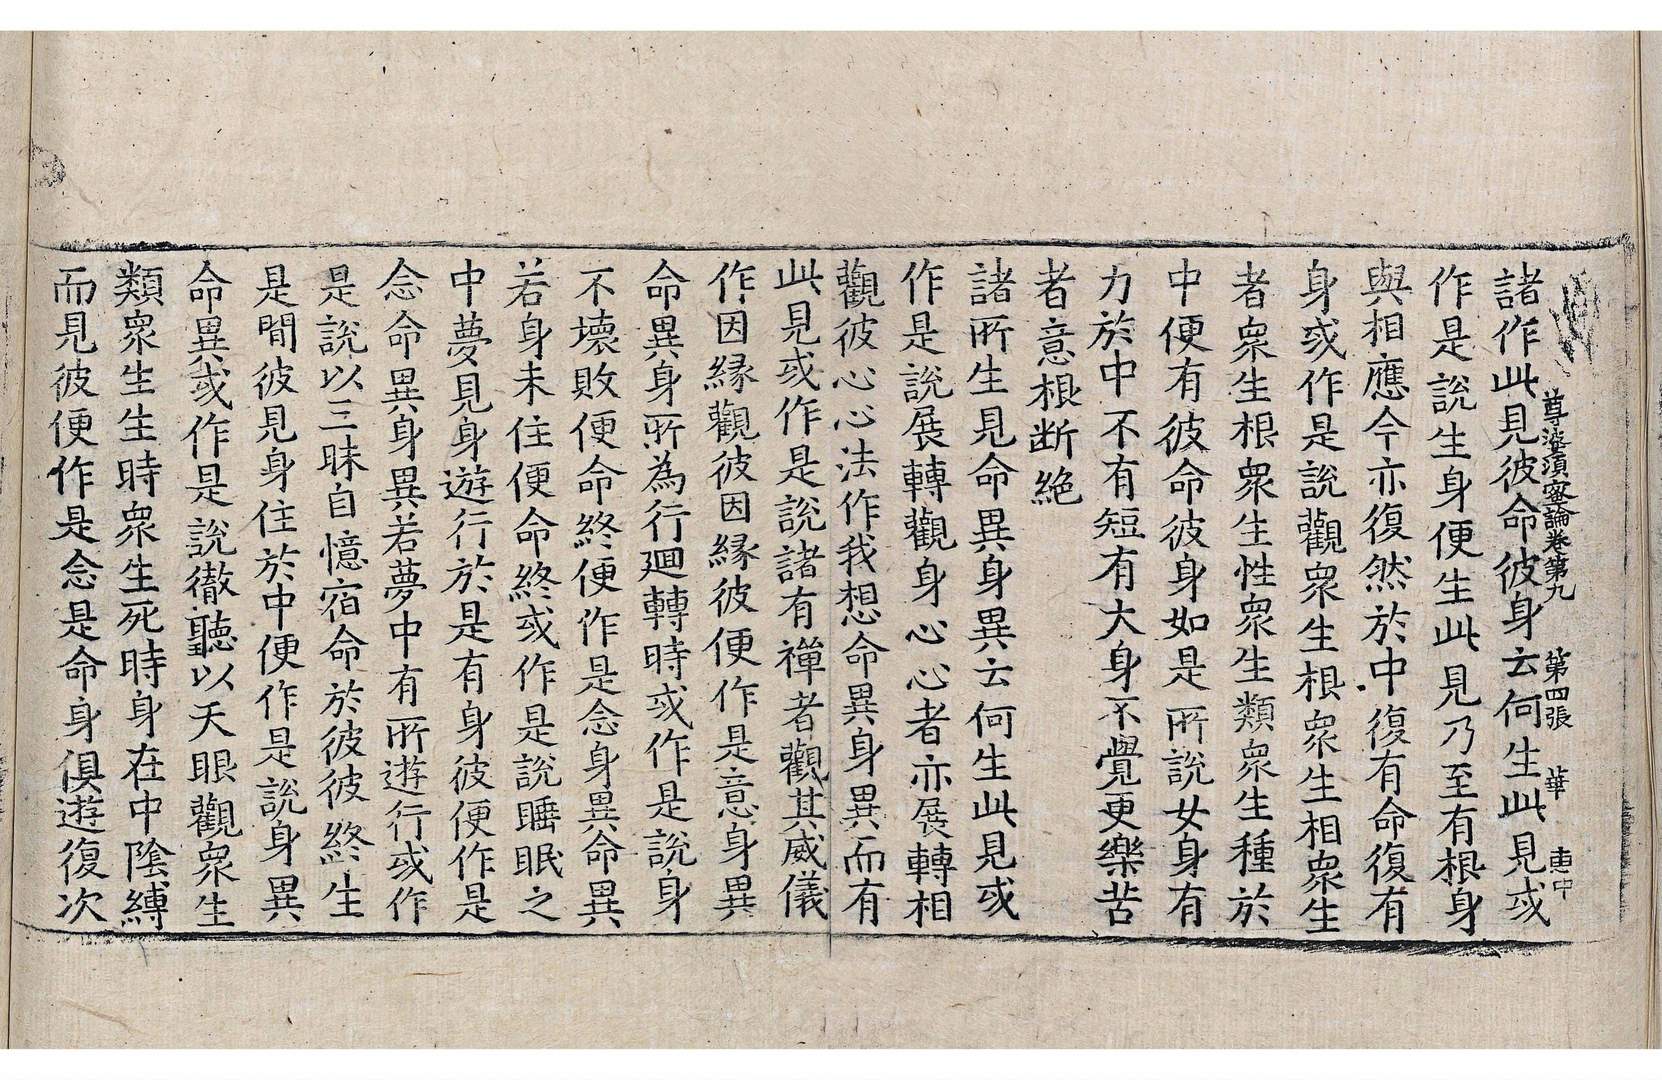 尊婆湏蜜論卷第九　第四張　華　惠中
諸作此見彼命彼身云何生此見或
作是說生身便生此見乃至有根身
與相應今亦復然於中復有命復有
身或作是說觀眾生根眾生相眾生
者眾生根眾生性眾生類眾生種於
中便有彼命彼身如是所說女身有
力於中不有短有大身不覺更樂苦
者意根断絕
諸所生見命異身異云何生此見或
作是說展轉觀身心心者亦展轉相
觀彼心心法作我想命異身異而有
此見或作是說諸有禪者觀其威儀
作因緣觀彼因緣彼便作是意身異
命異身所為行迴轉時或作是說身
不壞敗便命終便作是念身異命異
若身未住便命終或作是說睡眠之
中夢見身遊行於是有身彼便作是
念命異身異若夢中有所遊行或作
是說以三昧自憶宿命於彼彼終生
是間彼見身住於中便作是說身異
命異或作是說徹聽以天眼觀眾生
類眾生生時眾生死時身在中陰縛
而見彼便作是念是命身俱遊復次